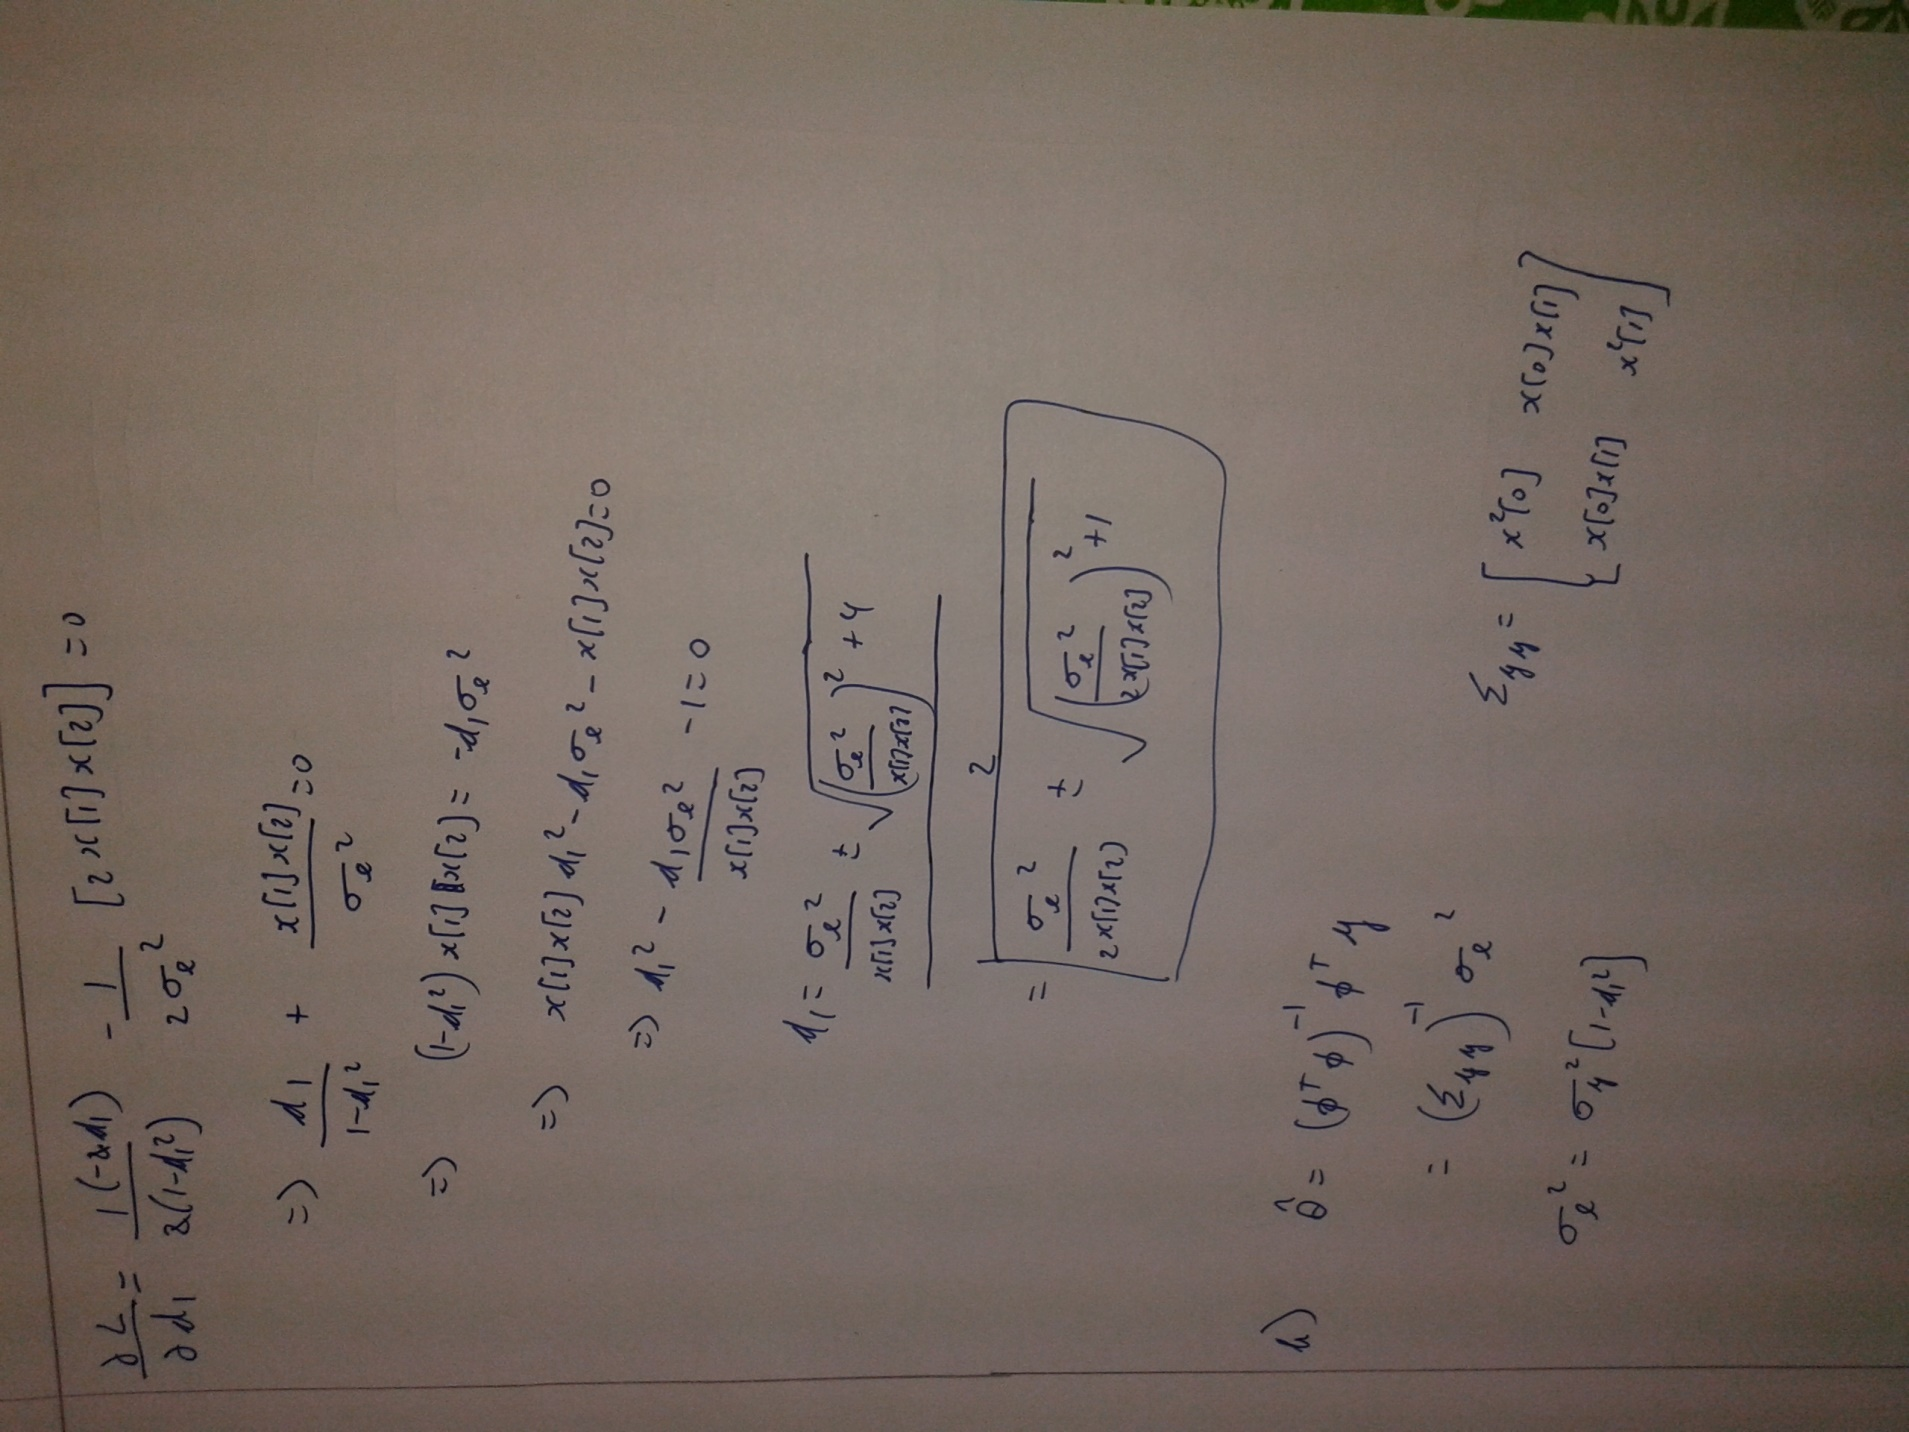 ∂L/∂d₁ = 1(-2d₁)/2(1-d₁²) - 1/2σₑ² [2x[1]x[2]] = 0
=) d₁/1-d₁² + x[1]x[2]/σₑ² = 0
=) (1-d₁²)x[1]x[2] = -d₁σₑ²
=) x[1]x[2]d₁² - d₁σₑ² - x[1]x[2] = 0
=) d₁² - d₁σₑ²/x[1]x[2] - 1 = 0
d₁ = σₑ²/x[1]x[2] ± √(σₑ²/x[1]x[2])² + 4
2
= σₑ²/2x[1]x[2] ± √(σₑ²/2x[1]x[2])² + 1
h) θ̂ = (ϕᵀϕ)⁻¹ϕᵀy
= (Σyy)⁻¹σₑ²
Σyy = [x²[0] x[0]x[1]
x[0]x[1] x²[1]]
σₑ² = σy²[1-d₁²]